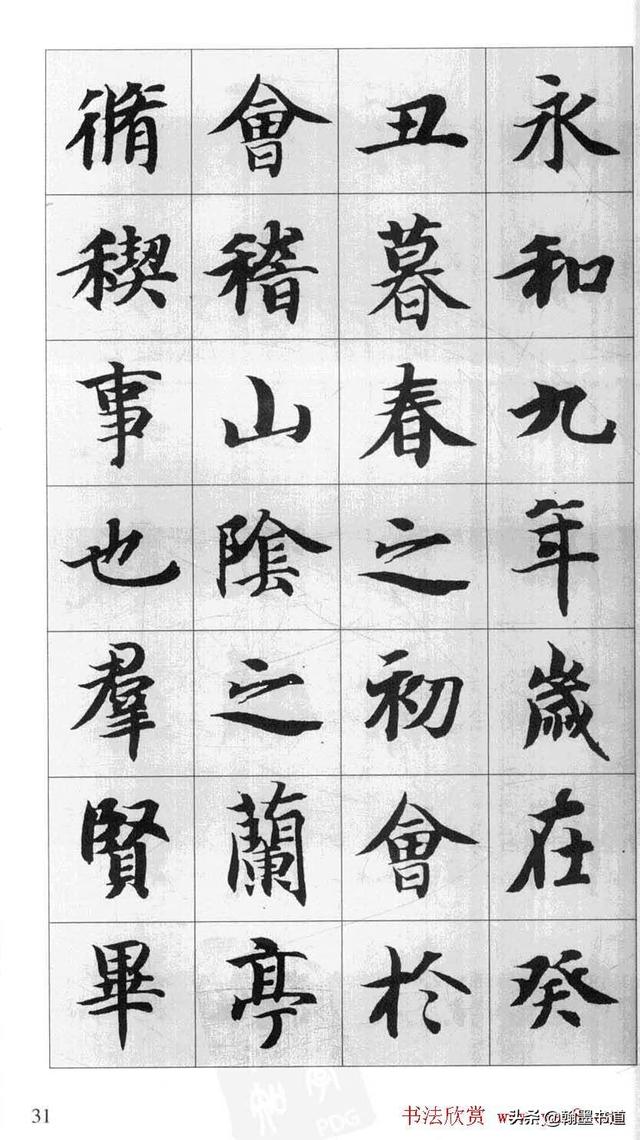 永和九年歲在癸
丑暮春之初會於
會稽山陰之蘭亭
脩稧事也羣賢畢
31
书法欣赏
头条@翰墨书道
PDG